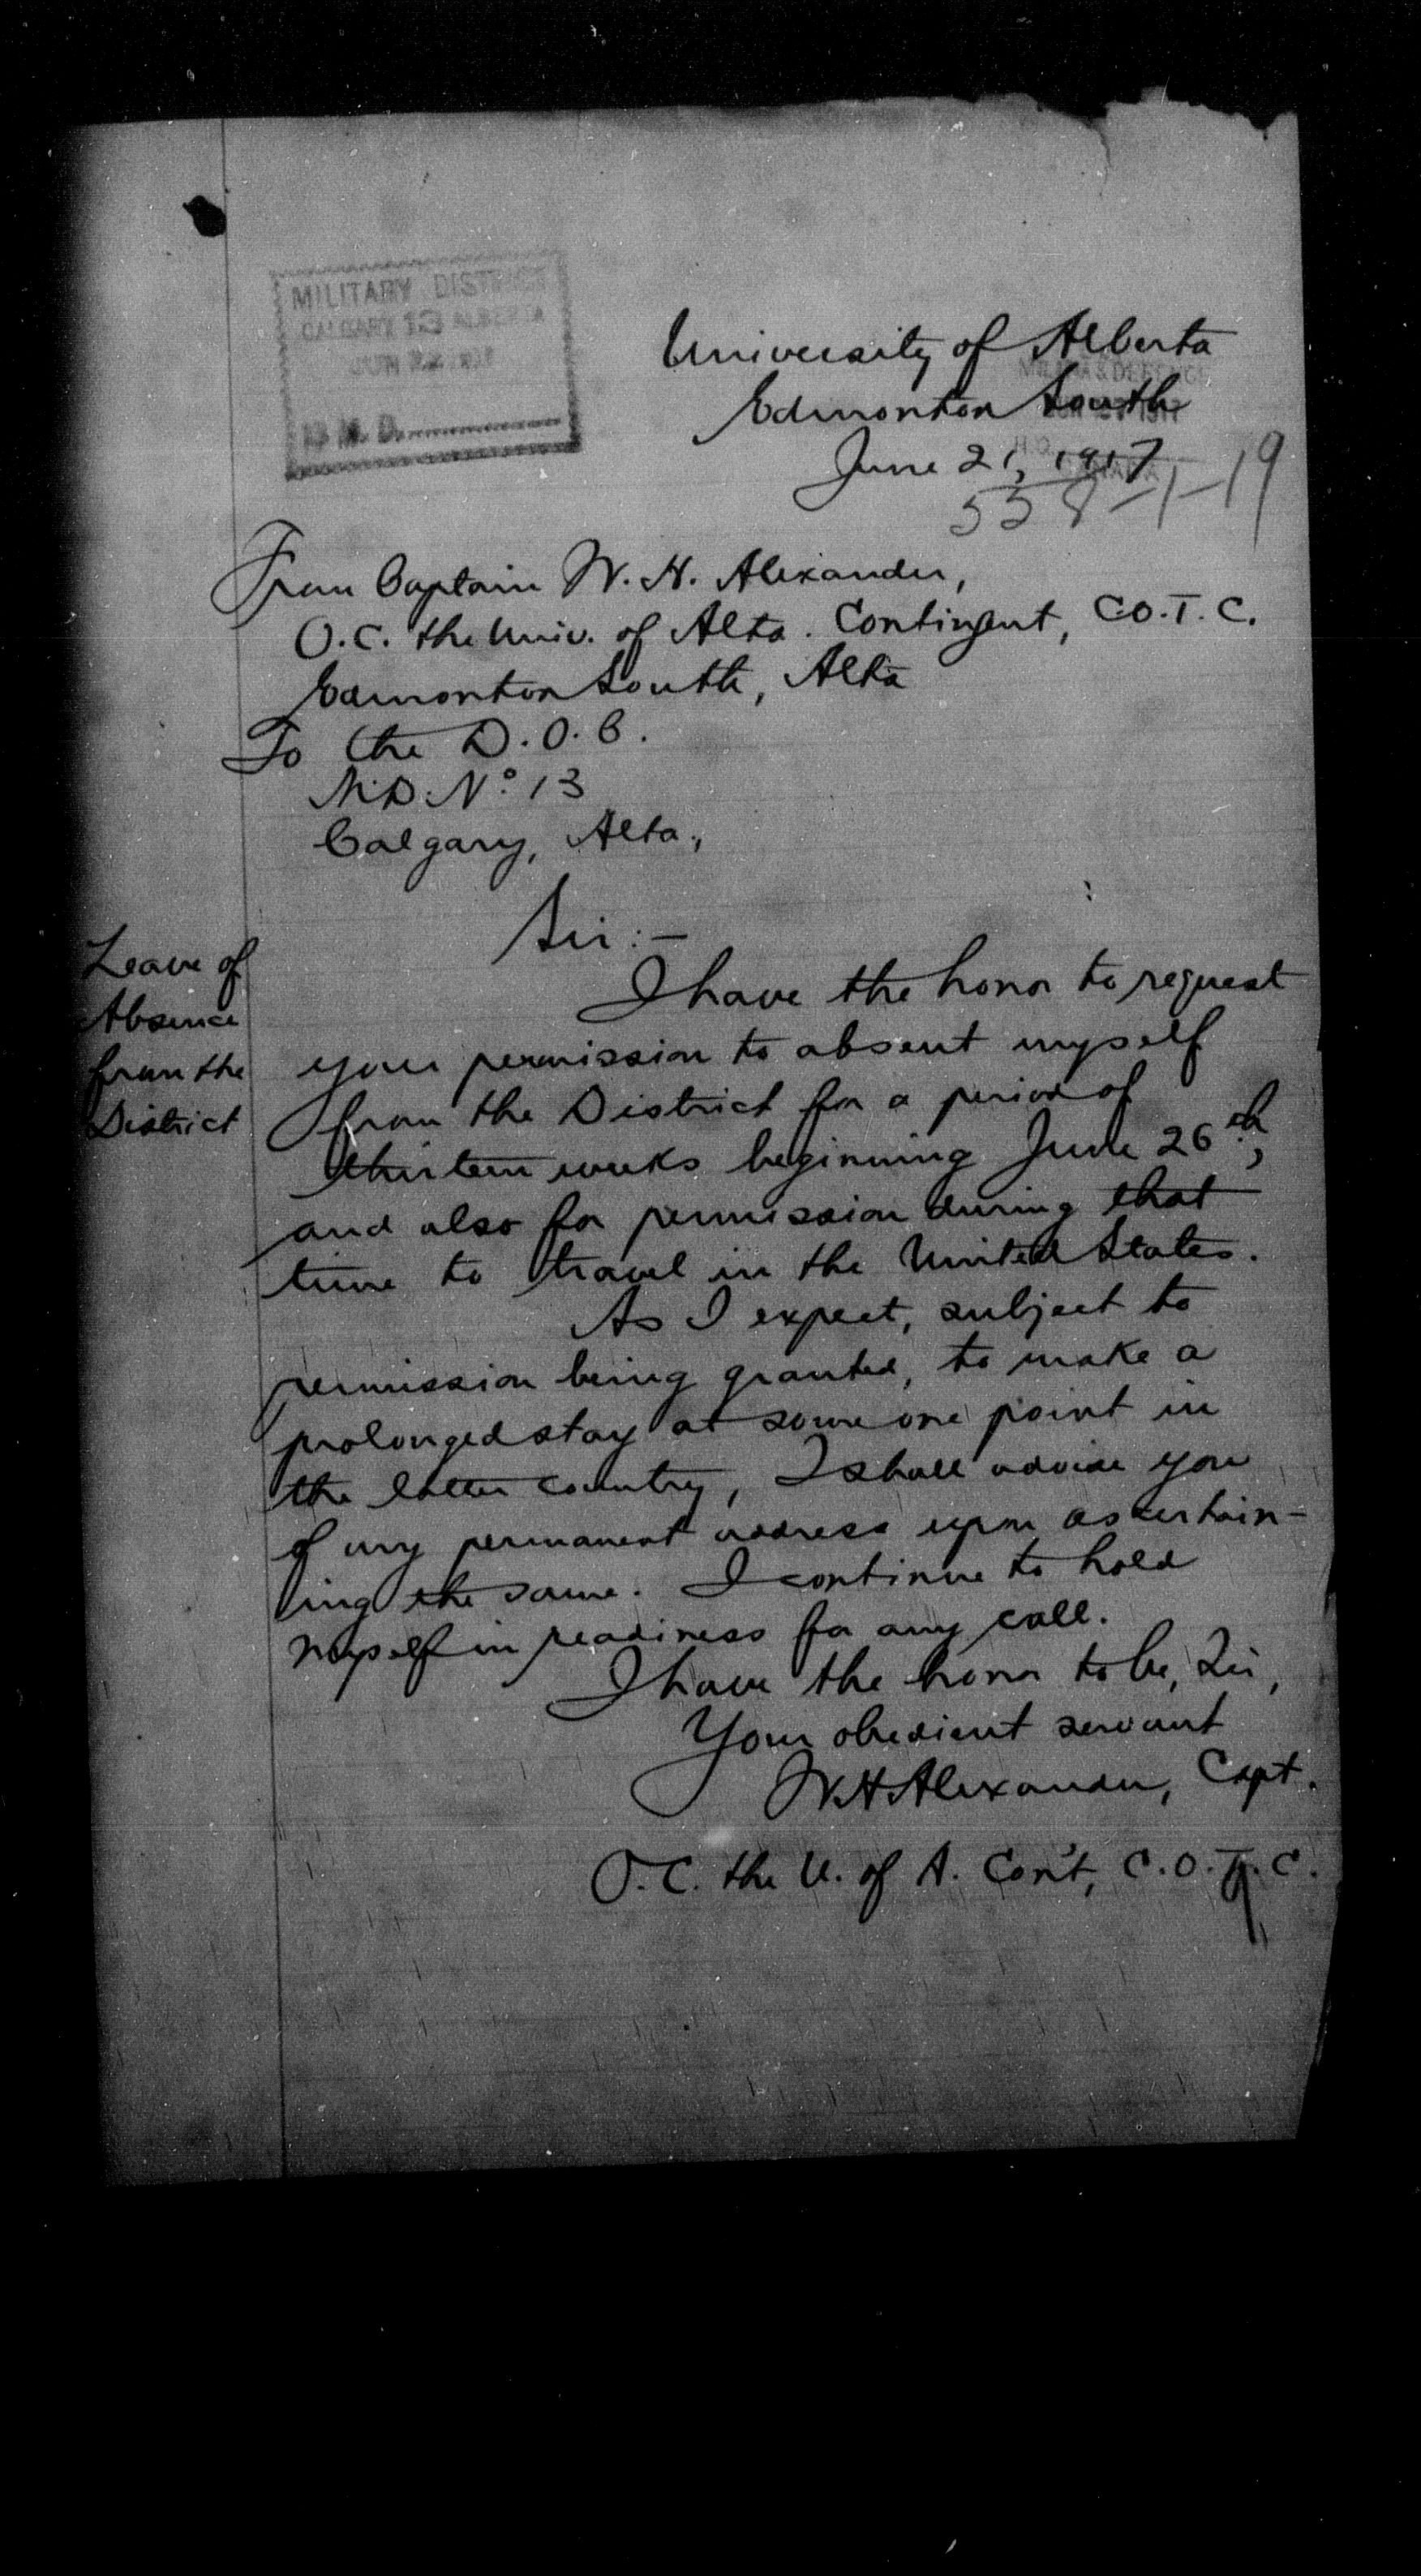 MILITARY DISTRICT
CALGARY 13 ALBERTA
JUN 22
13 M. D.
University of Alberta
MILITIA & DEFENCE
Edmonton South
June 21, 1917
558-1-19
From Captain W. H. Alexander,
O.C. the Univ. of Alta. Contingent, C.O.T.C.
Edmonton South, Alta
To the D.O.C.
M.D. No. 13
Calgary, Alta.,
Sir:-
Leave of
Absence
from the
District
I have the honor to request
your permission to absent myself
from the District for a period of
thirteen weeks beginning June 26th,
and also for permission during that
time to travel in the United States.
As I expect, subject to
permission being granted, to make a
prolonged stay at some one point in
the latter country, I shall advise you
of my permanent address upon ascertain-
ing the same. I continue to hold
myself in readiness for any call.
I have the honor to be, Sir,
Your obedient servant
W.H. Alexander, Capt.
O.C. the U. of A. Con't, C.O.T.C.